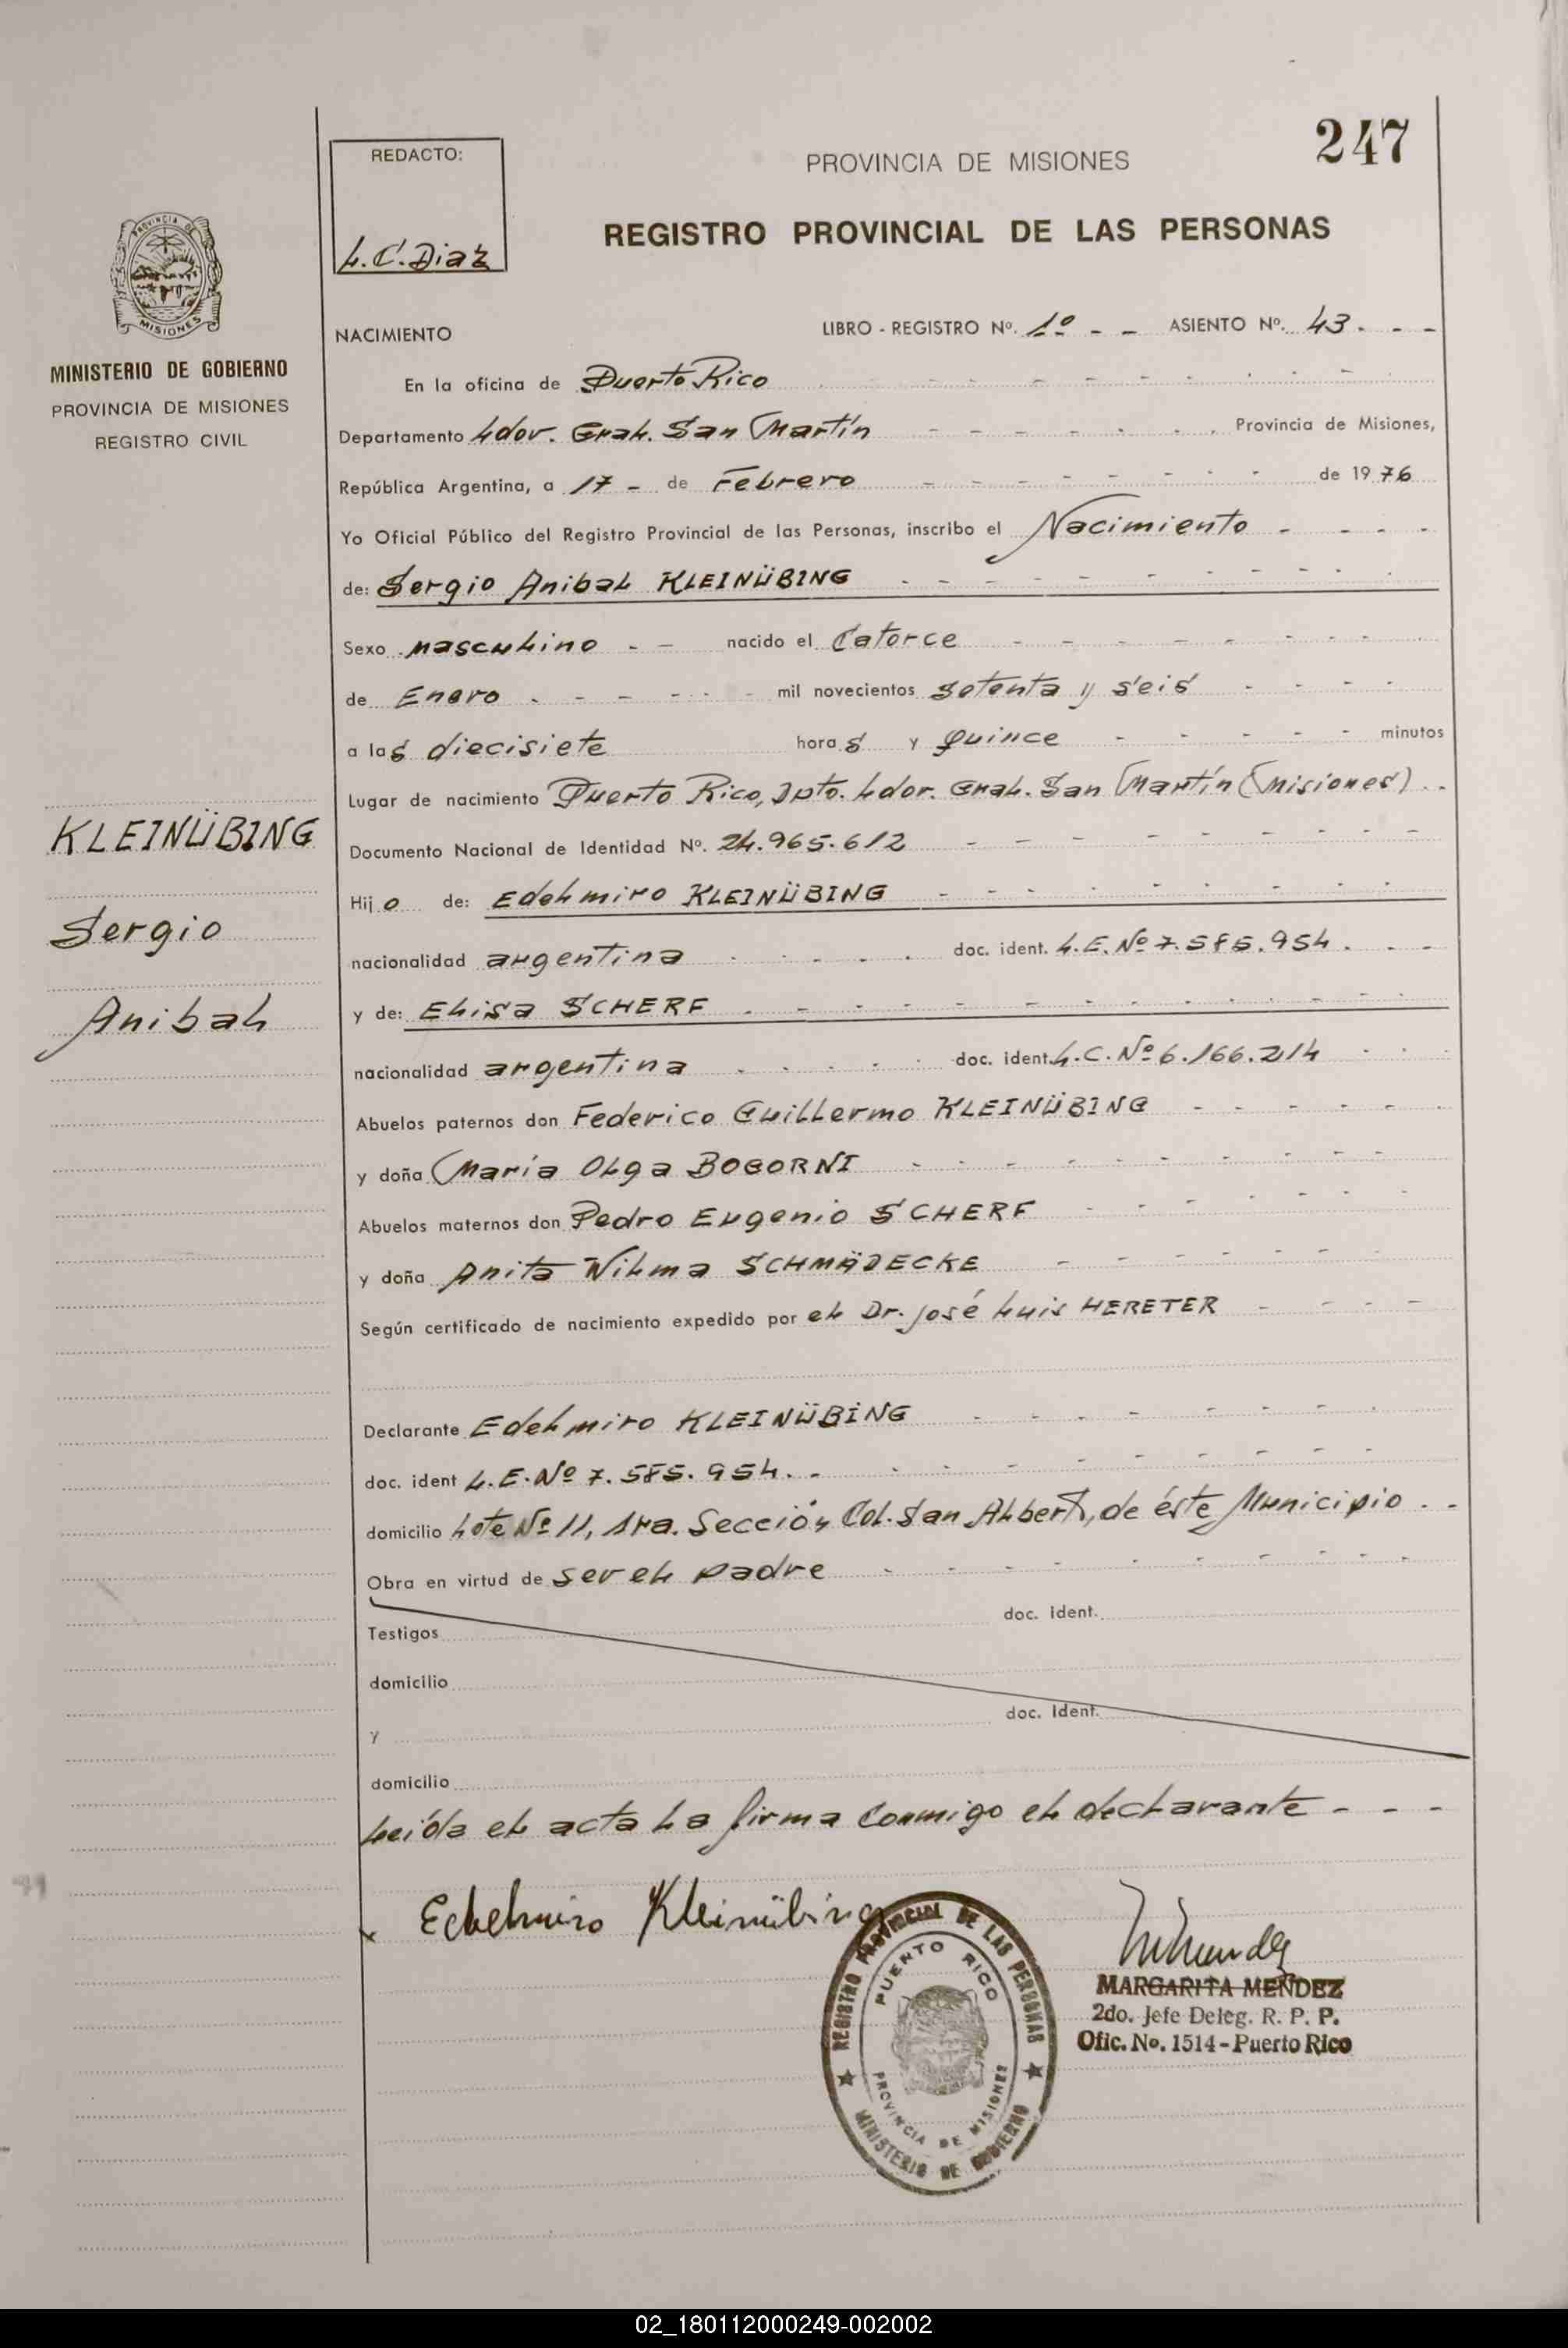 247
REDACTO:
L.C. Diaz
PROVINCIA DE MISIONES
REGISTRO PROVINCIAL DE LAS PERSONAS
PROVINCIA DE
MISIONES
MINISTERIO DE GOBIERNO
PROVINCIA DE MISIONES
REGISTRO CIVIL
KLEINÜBING
Sergio
Anibal
NACIMIENTO LIBRO - REGISTRO Nº. 1º - - ASIENTO Nº. 43 - - -
En la oficina de Puerto Rico
Departamento Ldor. Gral. San Martín Provincia de Misiones,
República Argentina, a 17 - de Febrero de 1976
Yo Oficial Público del Registro Provincial de las Personas, inscribo el Nacimiento
de: Sergio Anibal KLEINÜBING
Sexo masculino - - nacido el Catorce
de Enero mil novecientos setenta y seis
a las diecisiete horas y quince minutos
Lugar de nacimiento Puerto Rico, Dpto. Ldor. Gral. San Martín (Misiones)
Documento Nacional de Identidad Nº. 24.965.612
Hijo de: Edelmiro KLEINÜBING
nacionalidad argentina doc. ident. L.E. Nº 7.585.954
y de: Elisa SCHERF
nacionalidad argentina doc. ident. L.C. Nº 6.166.214
Abuelos paternos don Federico Guillermo KLEINÜBING
y doña María Olga BOGORNI
Abuelos maternos don Pedro Eugenio SCHERF
y doña Anita Wilma SCHMÄDECKE
Según certificado de nacimiento expedido por el Dr. José Luis HERETER
Declarante Edelmiro KLEINÜBING
doc. ident L.E. Nº 7.585.954. -
domicilio Lote Nº 11, 1ra. Sección Col. San Alberto, de éste Municipio
Obra en virtud de ser el padre
Testigos doc. ident.
domicilio
y doc. ident.
domicilio
Leída el acta la firma conmigo el declarante - - -
x Edelmiro Kleinübing
REGISTRO PROVINCIAL DE LAS PERSONAS
PUERTO RICO
PROVINCIA DE MISIONES
MINISTERIO DE GOBIERNO
MARGARITA MENDEZ
2do. Jefe Deleg. R. P. P.
Ofic. No. 1514 - Puerto Rico
02_180112000249-002002